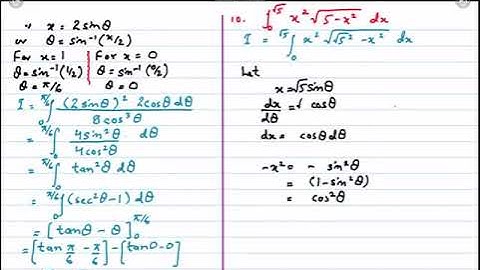 ∴ x = 2sinθ
or θ = sin⁻¹(x/2)
For x = 1 | For x = 0
θ = sin⁻¹(1/2) | θ = sin⁻¹(0/2)
θ = π/6 | θ = 0
I = ∫₀^(π/6) (2sinθ)² 2cosθ dθ / 8cos³θ
= ∫₀^(π/6) 4sin²θ / 4cos²θ dθ
= ∫₀^(π/6) tan²θ dθ
= ∫₀^(π/6) (sec²θ-1) dθ
= [tanθ - θ]₀^(π/6)
= [tan π/6 - π/6] - [tan0-0]
10. ∫₀^(√5) x² √(5-x²) dx
I = ∫₀^(√5) x² √(√5² - x²) dx
Let
x = √5 sinθ
dx/dθ = cosθ
dx = cosθ dθ
-x² = - sin²θ
= (1-sin²θ)
= cos²θ